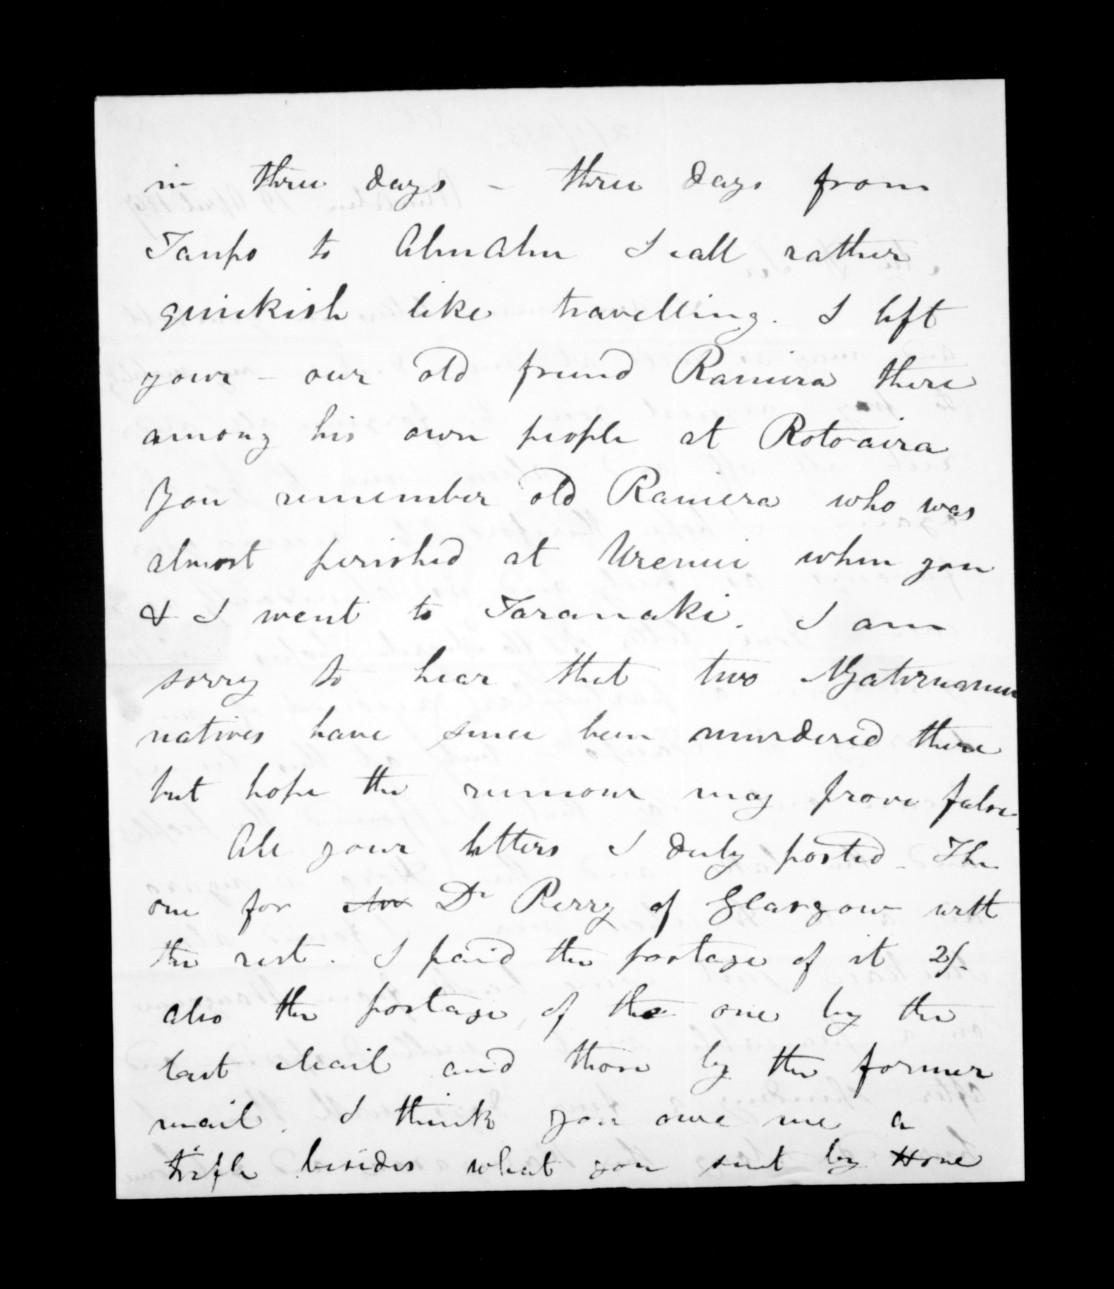 in three days - three days from
Taupo to Ahuahu I call rather
quickish like travelling. I left
your - our old friend Raniera there
among his own people at Roto-aira
You remember old Raniera who was
almost perished at Urenui when you
& I went to Taranaki. I am
sorry to hear that two Ngatiruanui
natives have since been murdered there
but hope the rumour may prove false.
All your letters I duly posted. The
one for Dr Perry of Glasgow with
the rest. I paid the postage of it 2/-
also the postage of the one by the
last Mail and those by the former
mail. I think you owe me a
trifle besides what you sent by Hone